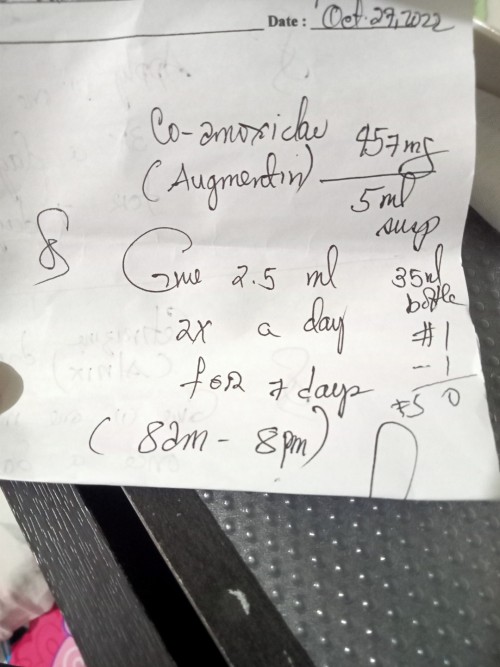 Date : Oct. 29, 2022
Co-amoxiclav 457mg
(Augmentin) 5ml
susp
Give 2.5 ml 35ml
bottle
2x a day #1
for 7 days - 1
0
(8am - 8pm)